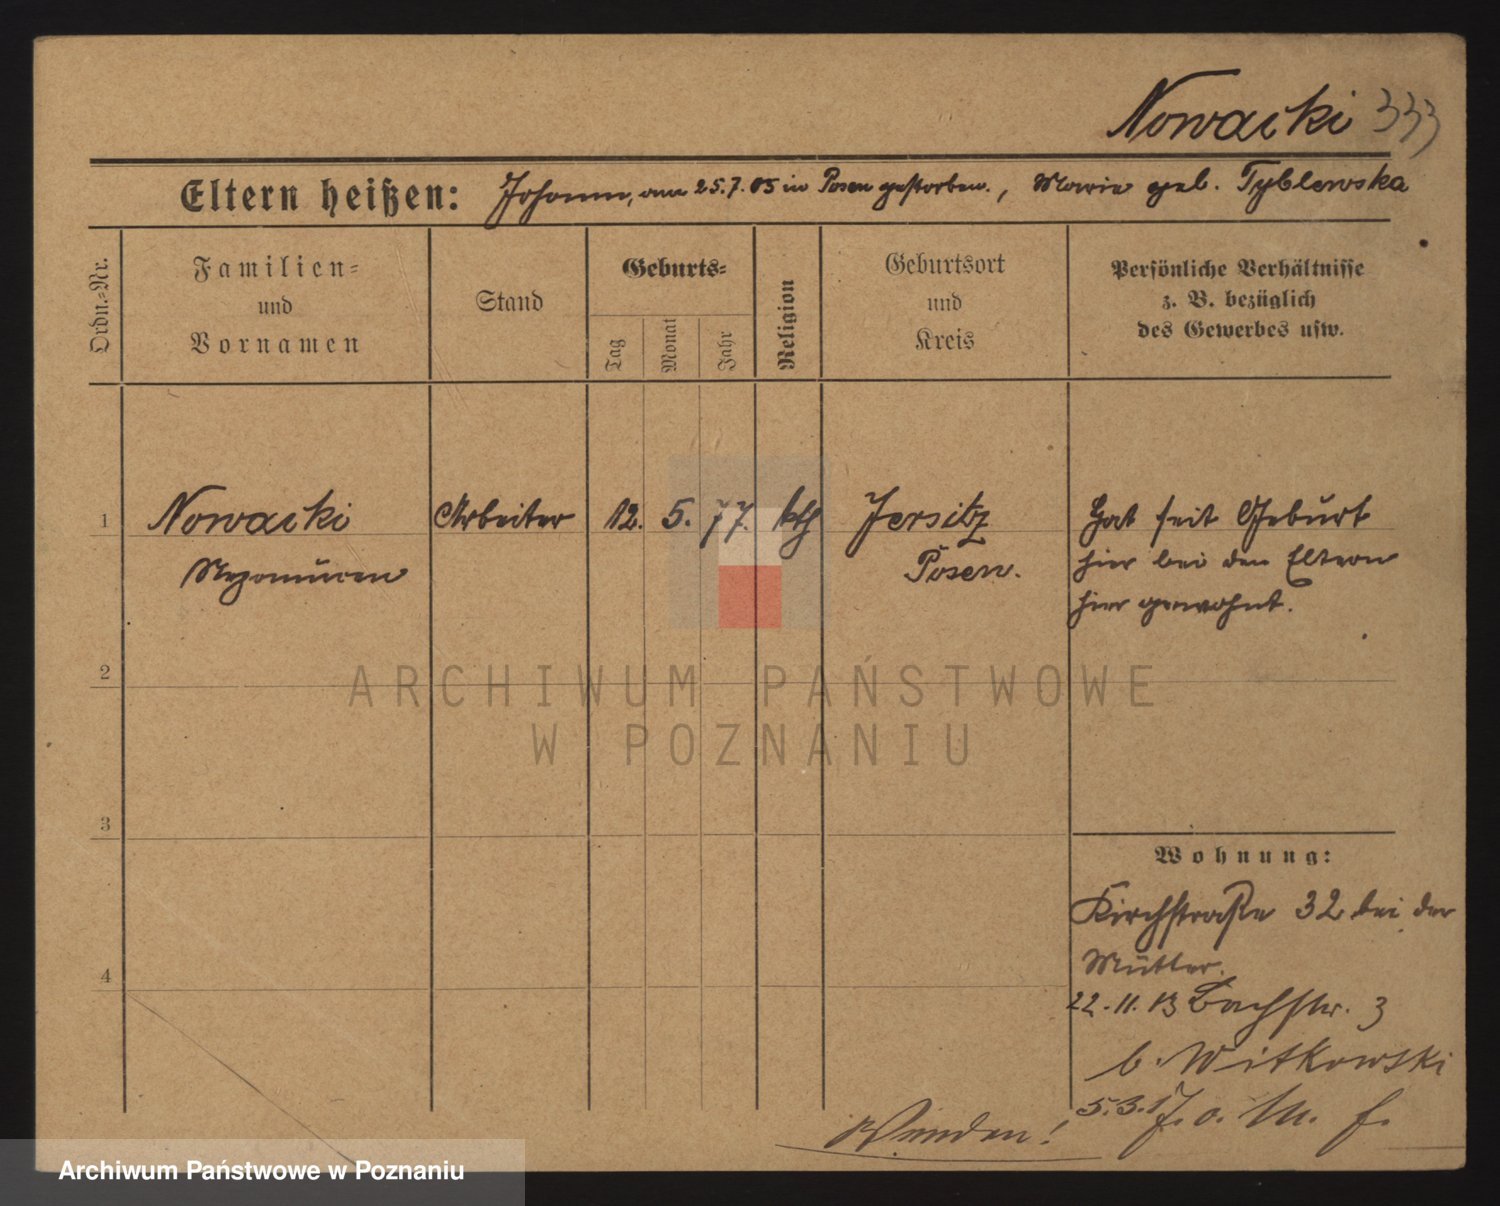 Nowacki 333
Eltern heißen: Johann, am 25.7.05 in Posen gestorben., Marie geb. Tyblewska
Ordn.-Nr.
Familien-
und
Vornamen
Stand
Geburts-
Tag
Monat
Jahr
Religion
Geburtsort
und
Kreis
Persönliche Verhältnisse
z. B. bezüglich
des Gewerbes usw.
1 Nowacki Arbeiter 12. 5. 77. kth Jersitz Hat seit Geburt
Nepomucen Posen. hier bei den Eltern
hier gewohnt.
2
ARCHIWUM PAŃSTWOWE
W POZNANIU
3
Wohnung:
Kirchstraße 32 bei der
Mutter.
4
22.11.13 Bachstr. 3
b. Witkowski
5.3.17. o. M. f.
Wenden!
Archiwum Państwowe w Poznaniu